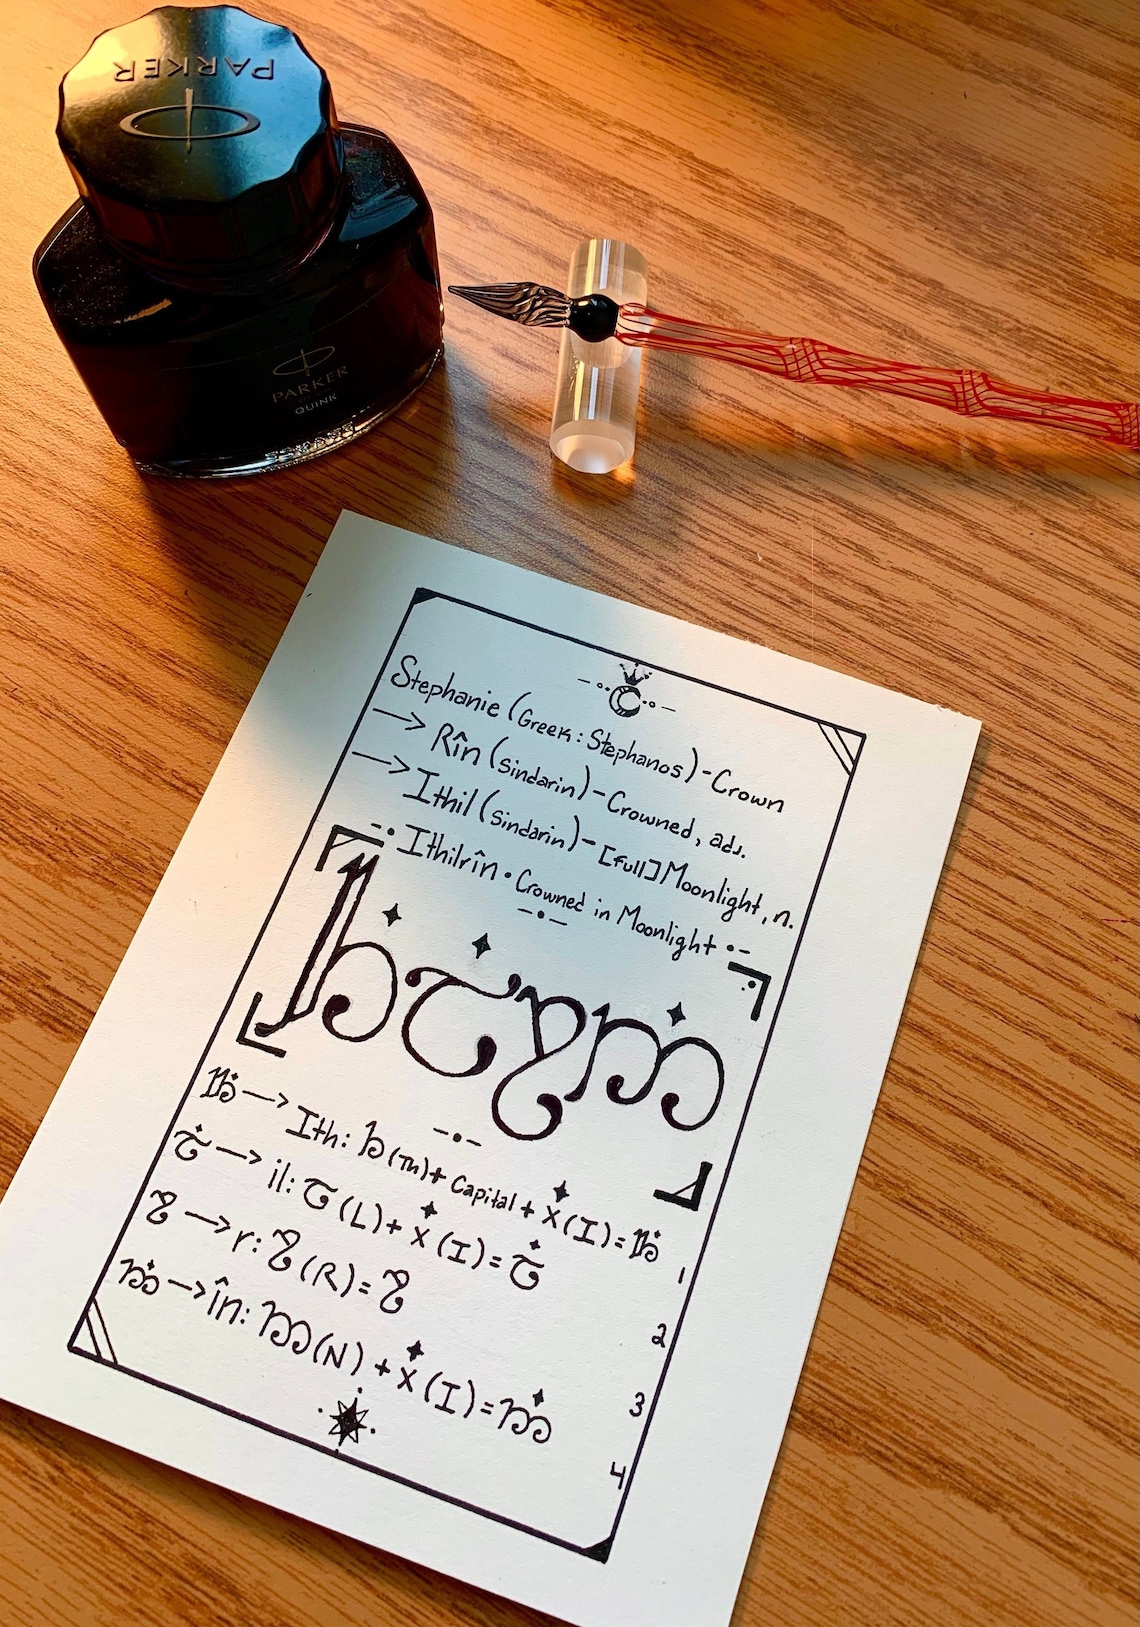 PARKER
PARKER
QUINK
Stephanie (Greek: Stephanos) - Crown
→ Rîn (Sindarin) - Crowned, adj.
→ Ithil (Sindarin) - [full] Moonlight, n.
-• Ithilrîn • Crowned in Moonlight •-
→ Ith: (Th) + Capital + X (I) =
1
→ il: (L) + X (I) =
2
→ r: (R) =
3
→ în: (N) + X (I) =
4